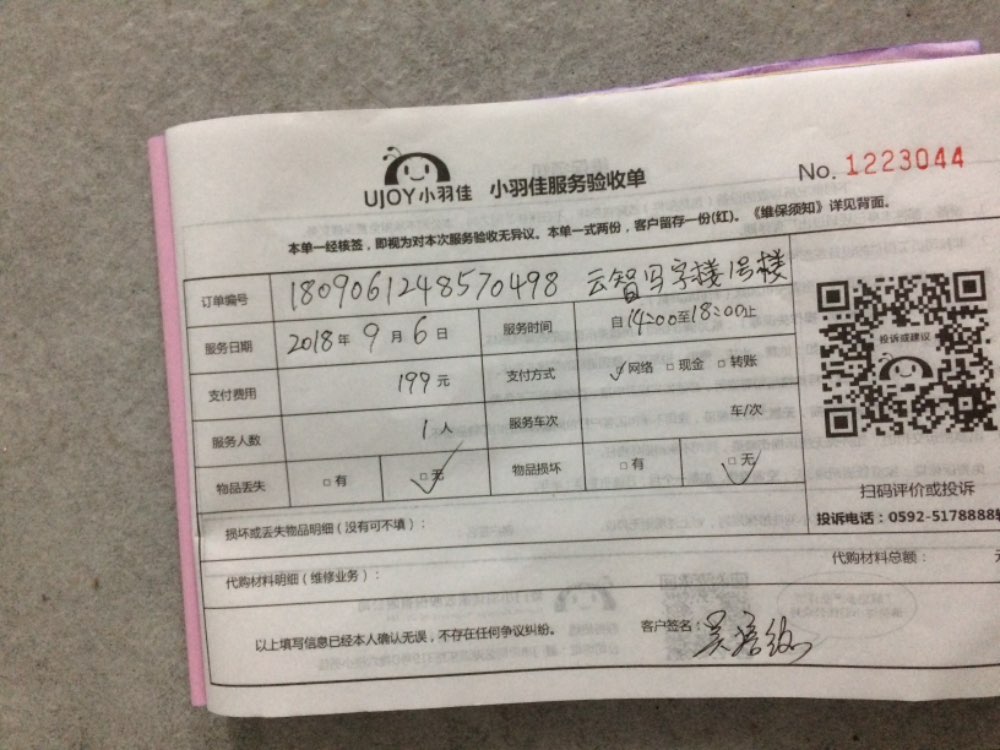 UJOY小羽佳 小羽佳服务验收单
No. 1223044
本单一经核签，即视为对本次服务验收无异议。本单一式两份，客户留存一份(红)。《维保须知》详见背面。
订单编号 1809061248570498 云智写字楼1号楼
服务日期 2018年9月6日 服务时间 自14:00至18:00止
支付费用 199元 支付方式 ☑网络 □现金 □转账
服务人数 1人 服务车次 车/次
物品丢失 □有 ☑无 物品损坏 □有 ☑无
投诉或建议
扫码评价或投诉
投诉电话：0592-5178888
损坏或丢失物品明细（没有可不填）：
代购材料明细（维修业务）：
代购材料总额：
以上填写信息已经本人确认无误，不存在任何争议纠纷。
客户签名：